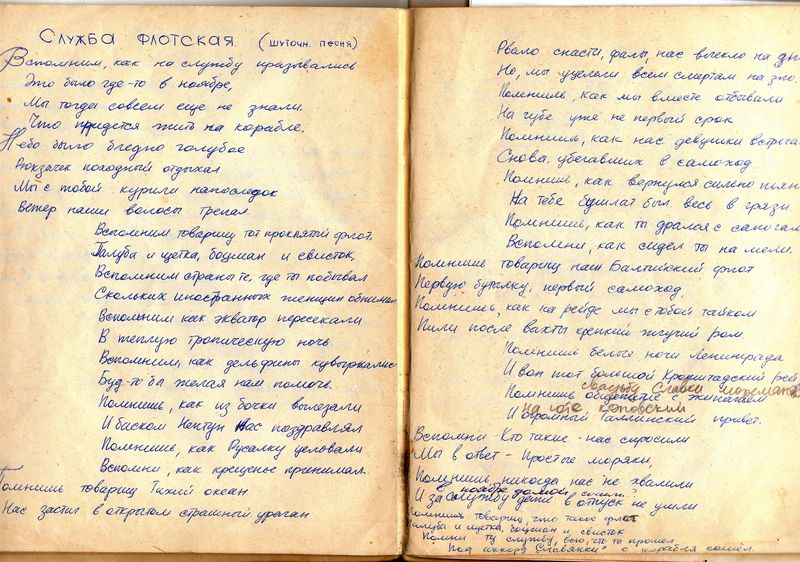 Служба флотская. (шуточн. песня)
Вспомним, как на службу призывались
Это было где-то в ноябре,
Мы тогда совсем еще не знали.
Что придется жить на корабле.
Небо было бледно голубое
Рюкзачек походный отдыхал
Мы с тобой курили напоследок
Ветер наши волосы трепал.
Вспомним товарищ тот проклятый флот,
Палуба и щетка, боцман и свисток,
Вспомним страны те, где ты побывал
Скольких иностранных женщин обнимал
Вспомним как экватор пересекали
В теплую тропическую ночь
Вспомним, как дельфины кувыркались
Буд-то бы желая нам помочь.
Помнишь, как из бочки вылезали
И виском Нептун нас поздравлял
Помнишь, как Русалку целовали
Вспомни, как крещенье принимал.
Помнишь товарищ Тихий океан
Нас застал в открытом страшный ураган
Рвало снасти, фалы, нас влекло на дно
Но, мы уделали всем смертям на зло.
Помнишь, как мы вместе отбывали
На губе уже не первый срок
Помнишь, как нас девушки встречали
Снова, убегавших в самоход.
Помниш, как вернулся сильно пьяный
На тебе бушлат был весь в грязи
Помнишь, как ты дрался с сапогами
Вспомни, как сидел ты на мели.
Помнишь товарищ наш Балтийский флот
Первую бутылку, первый самоход.
Помнишь, как на рейде мы с тобой тайком
Пили после вахты крепкий жгучий ром.
Помниш белые ночи Ленинграда
И вот тот большой Кронштадский рей
свадьбу Славки
Помнишь общежитие с
на юте
И огромный Таллинский привет.
Вспомни - Кто такие - нас спросили
Мы в ответ - Простые моряки,
Помнишь, никогда нас не хвалили
в ноябре домой
И за службу даже в отпуск не ушли
Помнишь товарищ, что такое флот
Палуба и щетка, боцман и свисток
Помни ту службу, всю, что то прошел
Под аккорд "Славянки" с корабля сошел.